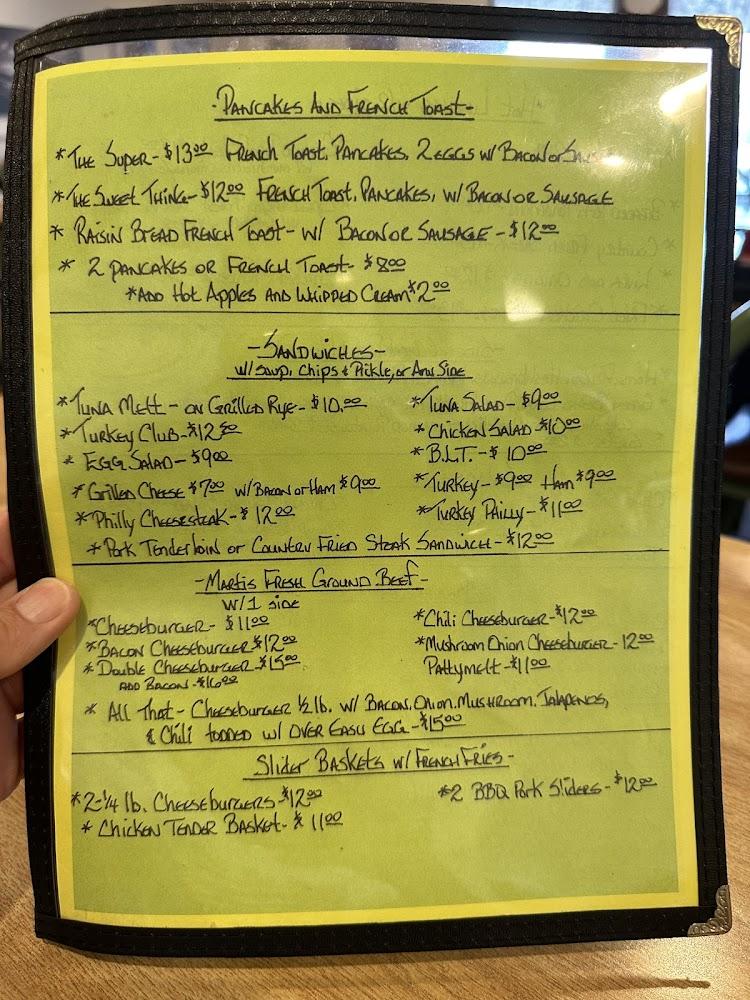 -PANCAKES AND FRENCH TOAST-
*THE SUPER- $13.00 FRENCH TOAST, PANCAKES, 2 EGGS W/ BACON OR
*THE SWEET THING- $12.00 FRENCH TOAST, PANCAKES, W/ BACON OR SAUSAGE
* RAISIN BREAD FRENCH TOAST- W/ BACON OR SAUSAGE - $12.00
* 2 PANCAKES OR FRENCH TOAST- $8.00
*ADD HOT APPLES AND WHIPPED CREAM $2.00
-SANDWICHES-
W/ SOUP, CHIPS & PICKLE, OR ANY SIDE
*TUNA MELT - ON GRILLED RYE- $10.00
*TUNA SALAD- $9.00
*TURKEY CLUB- $12.50
*CHICKEN SALAD $10.00
* EGG SALAD- $9.00
*B.L.T.- $10.00
*GRILLED CHEESE $7.00 W/ BACON OR HAM $9.00
*TURKEY- $9.00 HAM $9.00
*PHILLY CHEESESTEAK- $12.00
*TURKEY PHILLY- $11.00
*PORK TENDERLOIN OR COUNTRY FRIED STEAK SANDWICH- $12.00
-MARTIS FRESH GROUND BEEF-
W/1 SIDE
*CHEESEBURGER- $11.00
*CHILI CHEESEBURGER- $12.00
*BACON CHEESEBURGER $12.00
*MUSHROOM ONION CHEESEBURGER- 12.00
* DOUBLE CHEESEBURGER $15.00
PATTYMELT- $11.00
ADD BACON- $16.00
* ALL THAT- CHEESEBURGER 1/2 lb. W/ BACON, ONION, MUSHROOM, JALAPENOS,
& CHILI TOPPED W/ OVER EASY EGG- $15.00
SLIDER BASKETS W/ FRENCH FRIES-
*2-1/4 lb. CHEESEBURGERS $12.00
*2 BBQ PORK SLIDERS- $12.00
* CHICKEN TENDER BASKET- $11.00